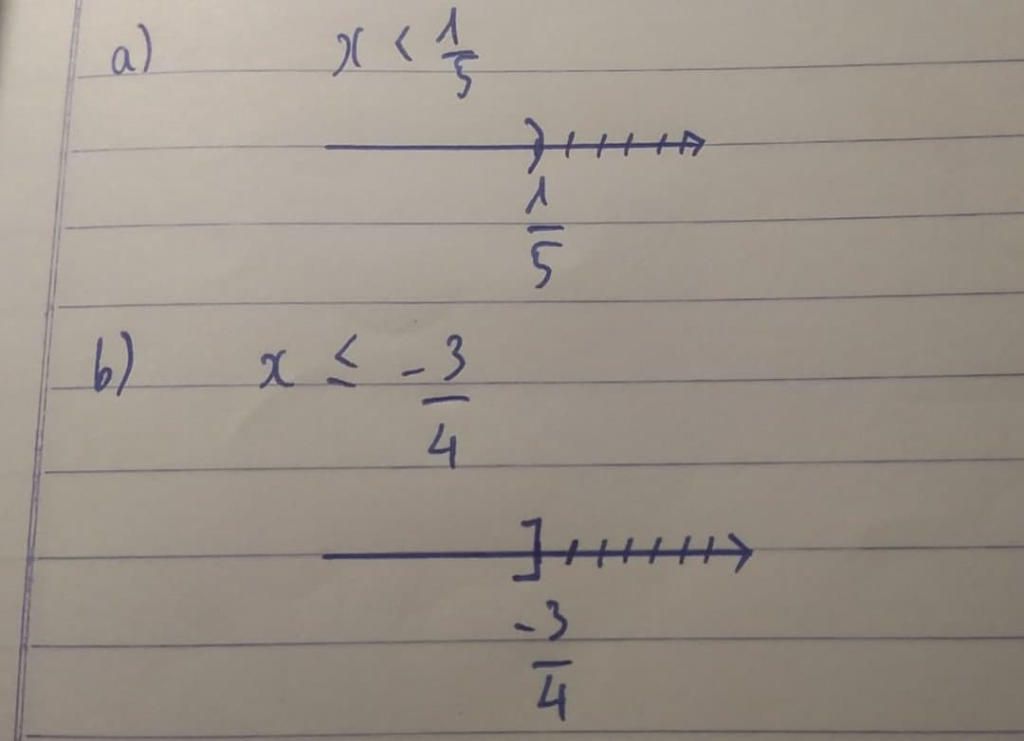 a) x < 1/5
)
1/5
b) x ≤ -3/4
]
-3/4